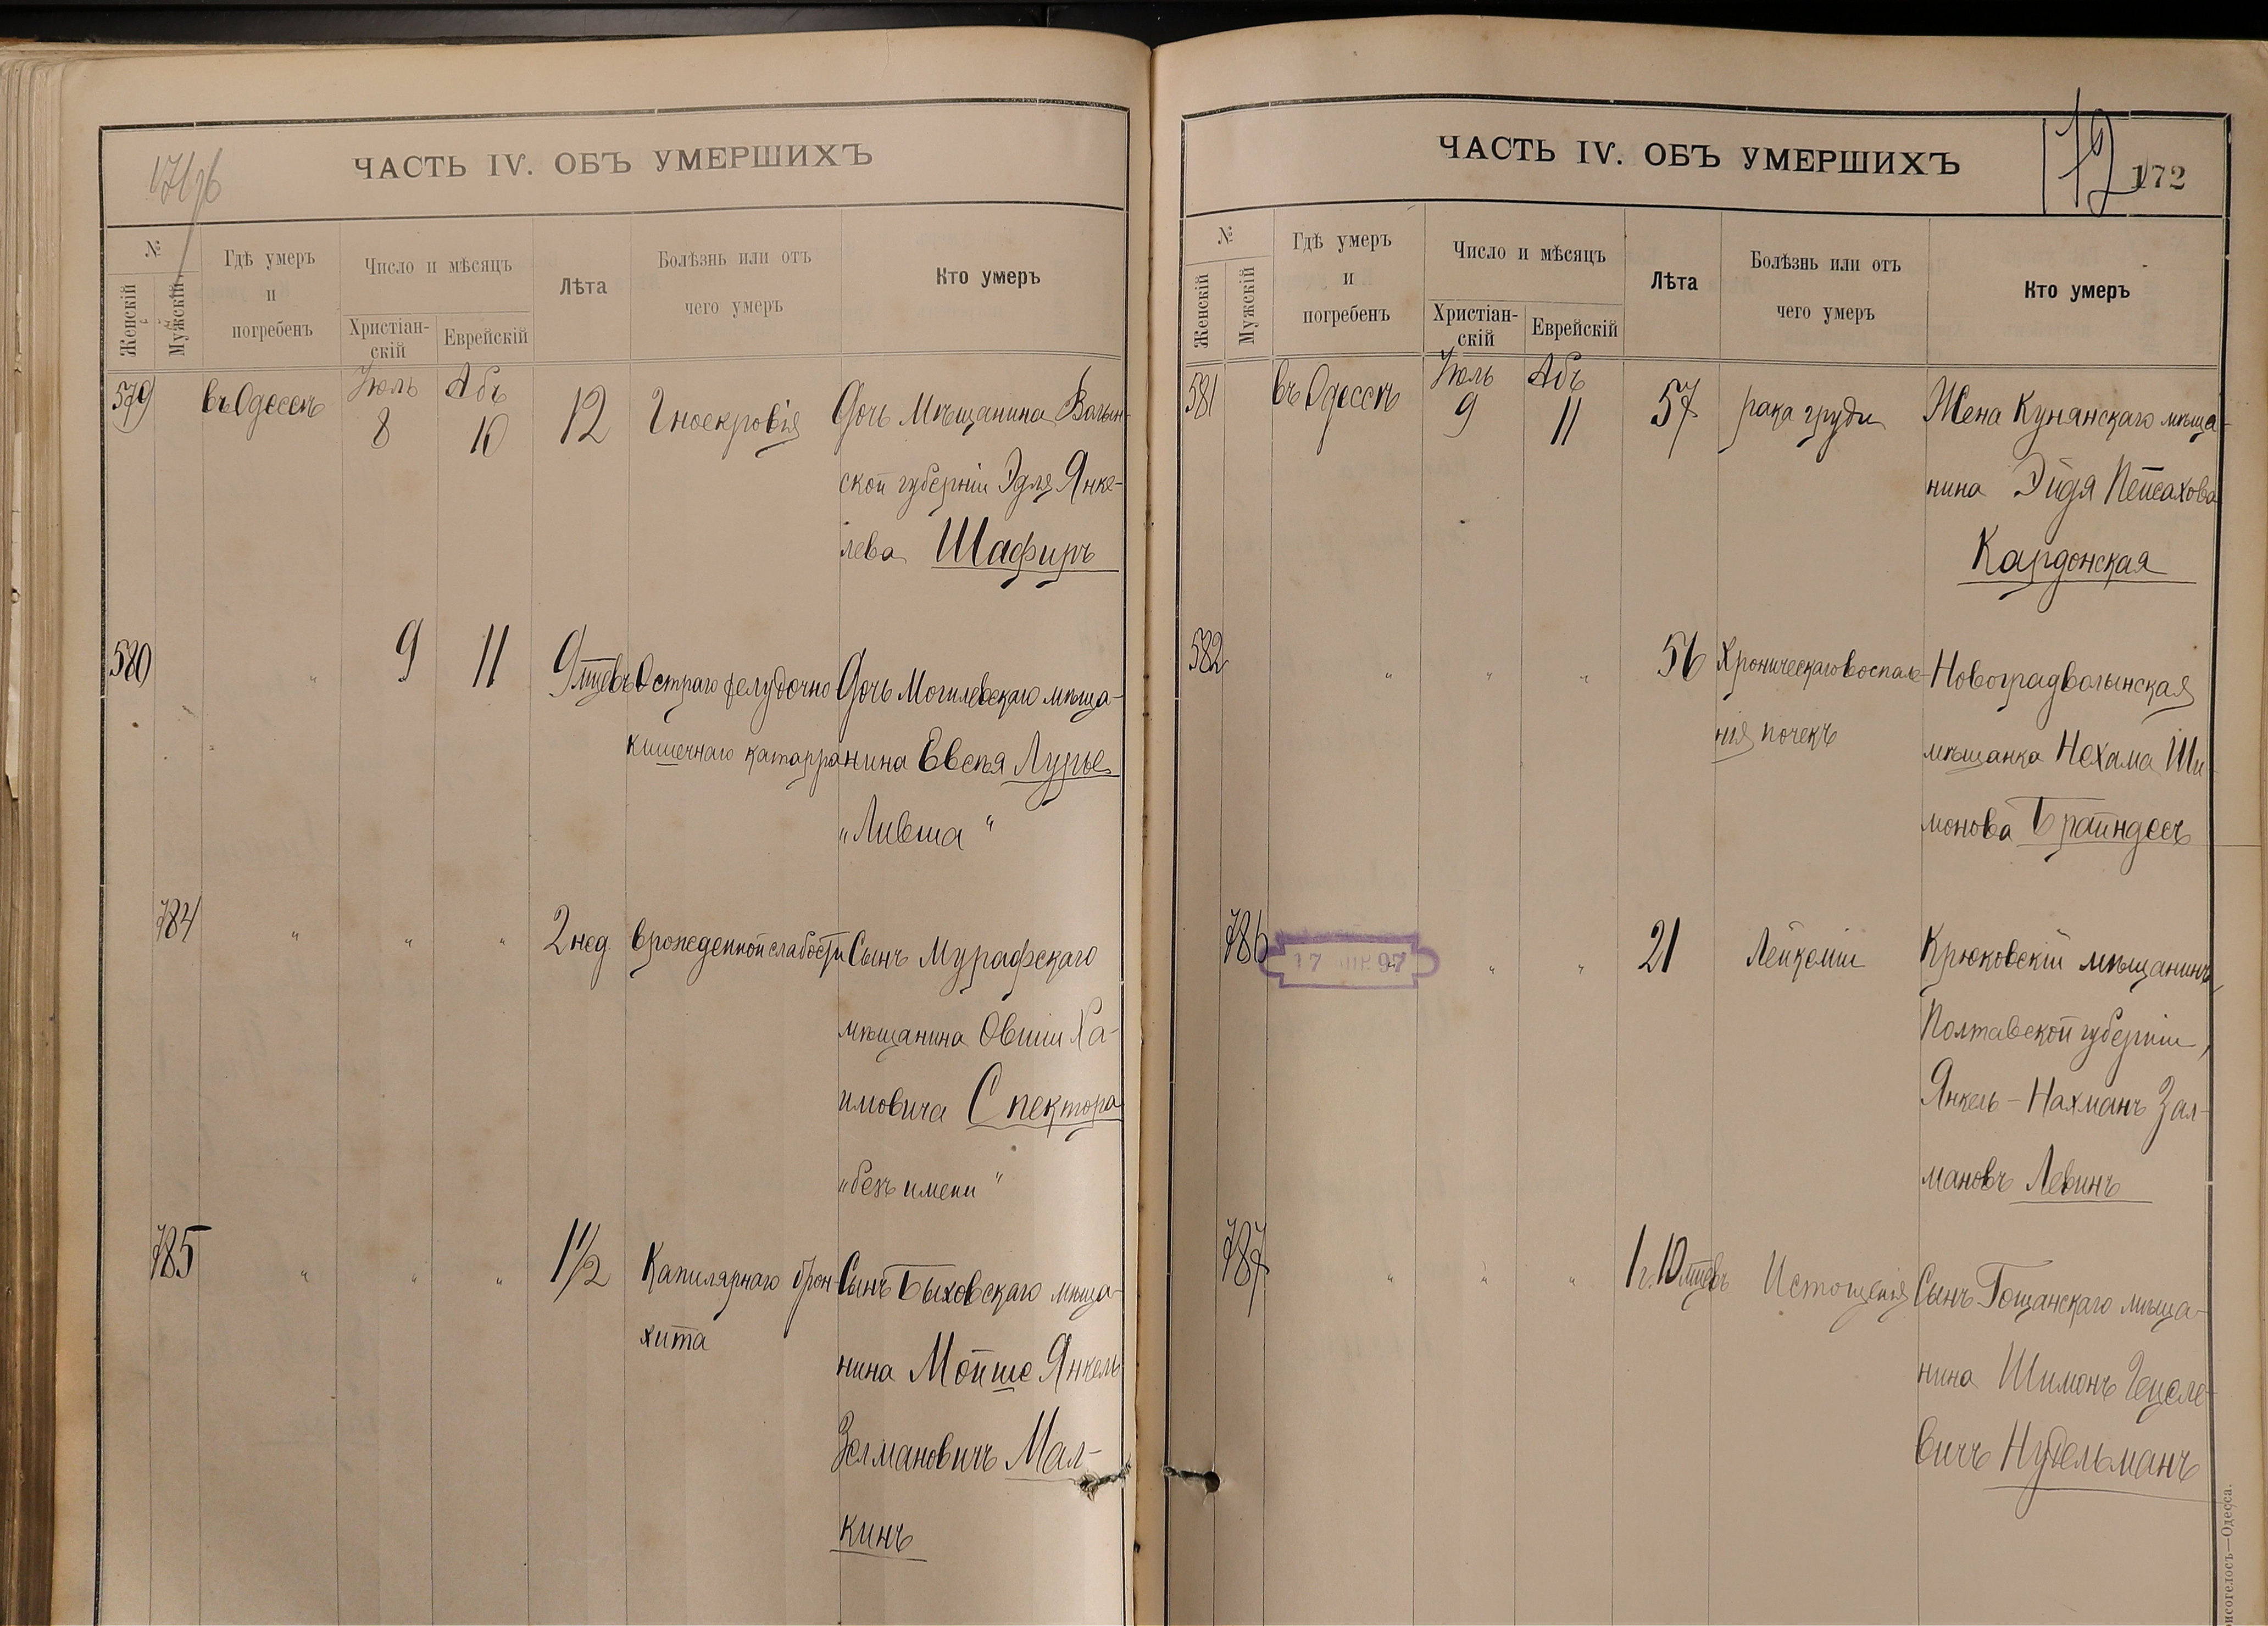 ЧАСТЬ IV. ОБЪ УМЕРШИХЪ
№
Женскій
Мужскій
Гдѣ умеръ
и
погребенъ
Число и мѣсяцъ
Христіан-
скій
Еврейскій
Лѣта
Болѣзнь или отъ
чего умеръ
Кто умеръ
579 въ Одессѣ Іюль 8 Абъ 10 12 Гноекровія Дочь Мѣщанина Волын-
ской губерніи Эдля Янке-
лева Шафиръ
580 " 9 11 9 мцевъ Остраго желудочно Дочь Могилевскаго мѣща-
кишечнаго катарра нина Евсѣя Лурье
„Ливша“
784 " " " 2 нед. врожденной слабости Сынъ Мурафскаго
мѣщанина Овшіи Ха-
имовича Спектора
„безъ имени“
785 " " " 1 1/2 Капилярнаго брон- Сынъ Быховскаго мѣща-
хита
нина Мойше Янкель
Зелмановичъ Мал-
кинъ
ЧАСТЬ IV. ОБЪ УМЕРШИХЪ
172
172
№
Женскій
Мужскій
Гдѣ умеръ
и
погребенъ
Число и мѣсяцъ
Христіан-
скій
Еврейскій
Лѣта
Болѣзнь или отъ
чего умеръ
Кто умеръ
581 въ Одессѣ Іюль 9 Абъ 11 57 рака груди Жена Кунянскаго мѣща-
нина Эйдя Пейсахова
Кардонская
582 " " " 56 Хроническаго воспале- Новоградволынская
нія почекъ мѣщанка Нехама Ши-
монова Брайндесъ
786 17 97 " " " 21 Лейкоміи Крюковскій мѣщанинъ,
Полтавской губерніи,
Янкель-Нахманъ Зал-
мановъ Левинъ
787 " " " 1 г. 10 мцевъ Истощенія Сынъ Гощанскаго мѣща-
нина Шимонъ Гецеле-
вичъ Нудельманъ